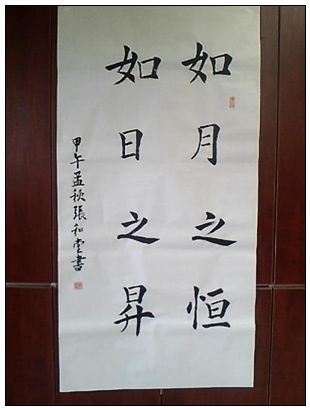 如月之恒
如日之昇
甲午孟秋張和堂書